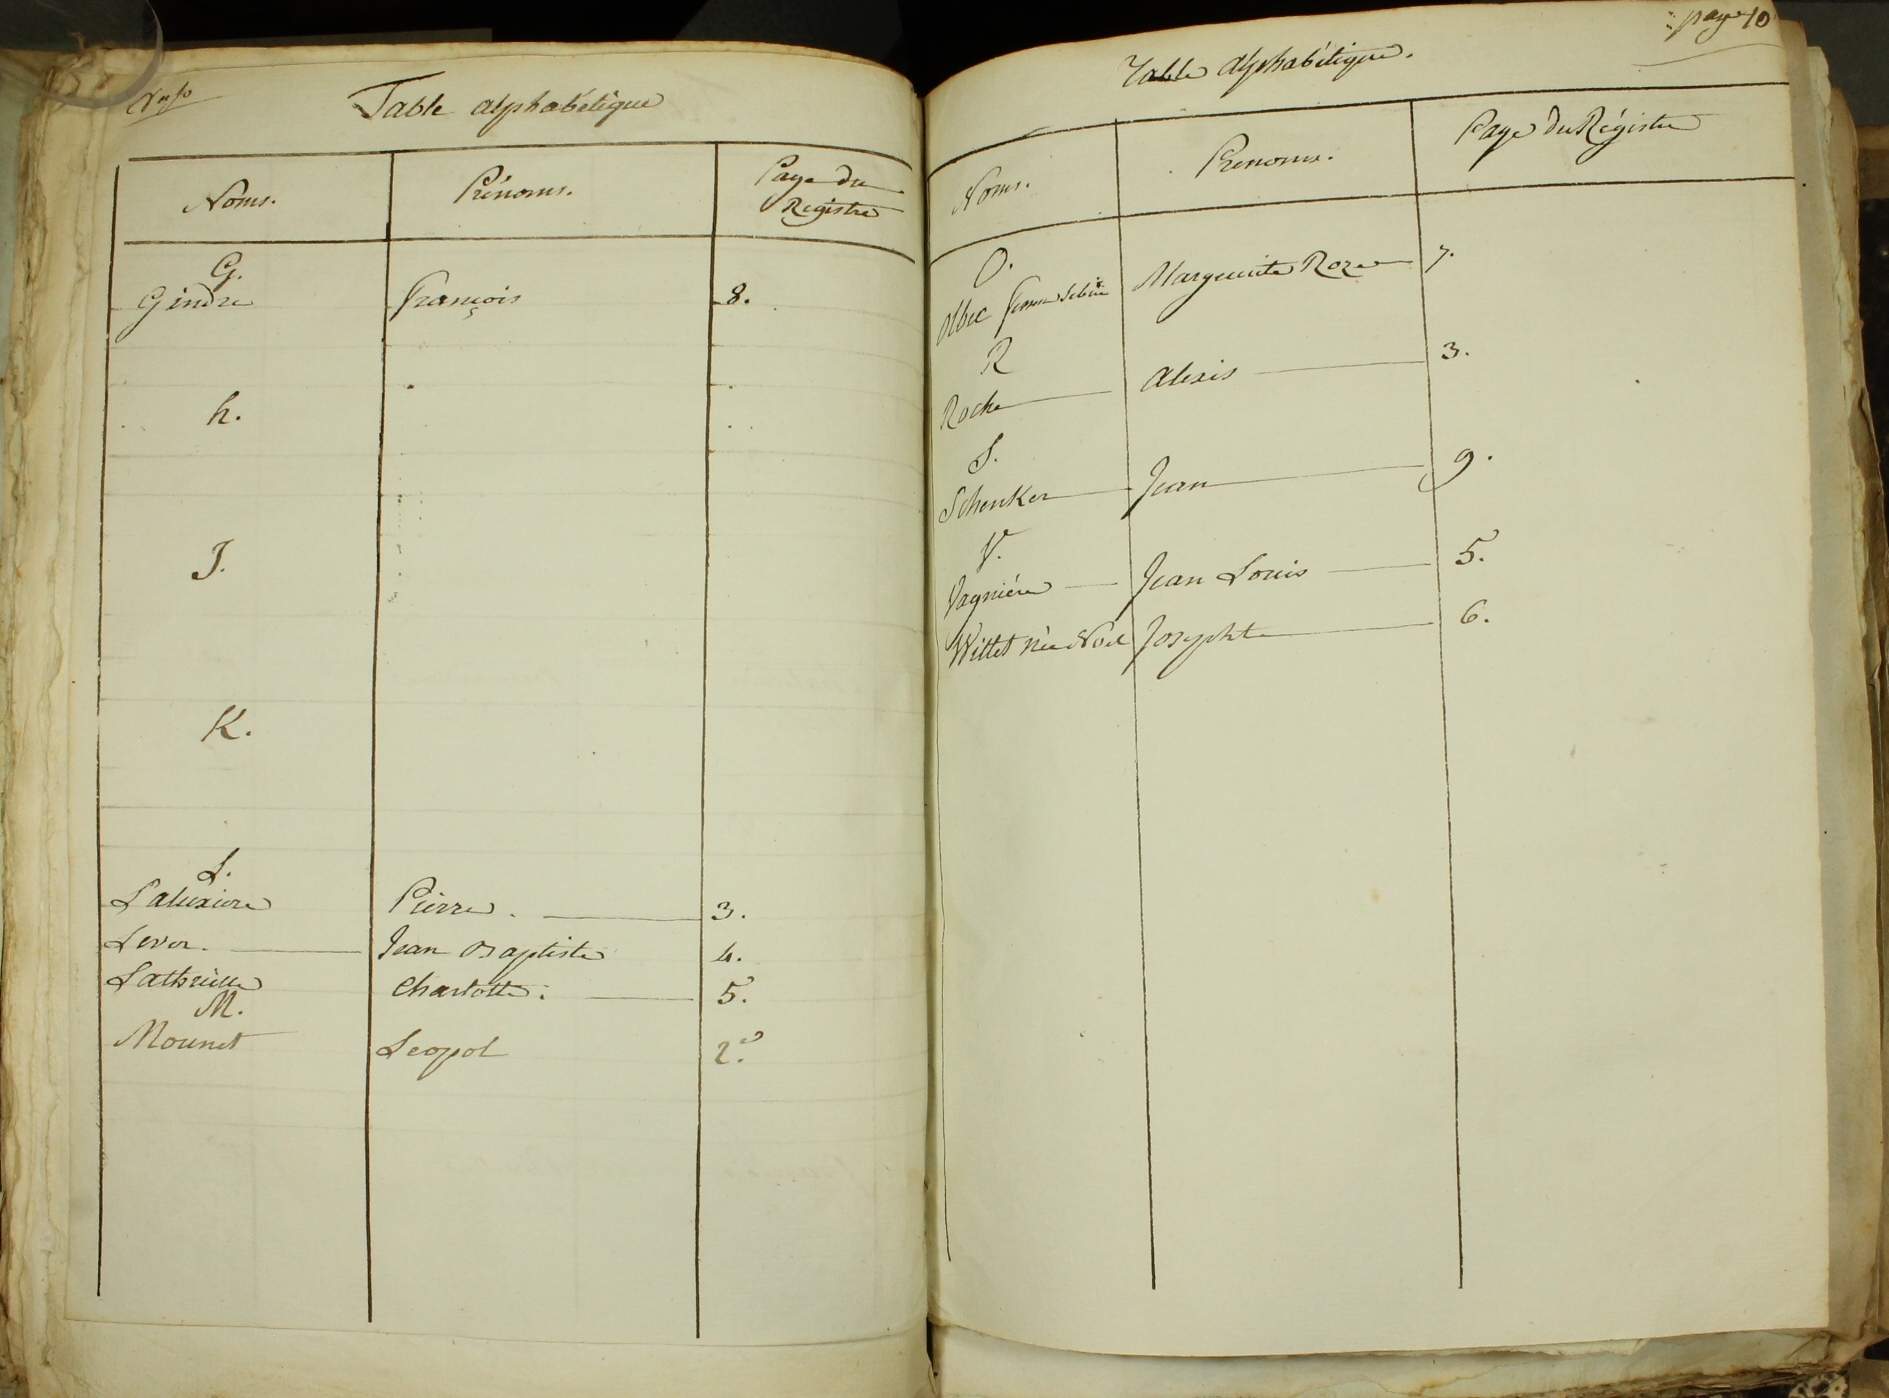 Table alphabétique
Noms. Prénoms. Page du Registre
G.
Gindre François 8.
h.
J.
K.
L.
Pierre. 3.
Lever. Jean Baptiste 4.
Charlotte. 5.
M.
Mounet Leopol 2.
page 10
Table alphabétique.
Noms. Prenoms. Page du Régistre
O.
Olbec femme Marguerite Roze 7.
R
Roche Alexis 3.
S.
Schenker Jean 9.
V.
Vagniére Jean Louis 5.
Willet née Noël Josephte 6.